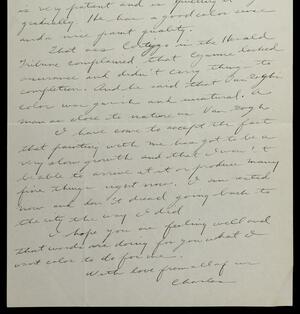 is very patient and is quietly &
gradually. He has a good color sense
and a nice paint quality.
That ass Cortissoz in the Herald
Tribune complained that Cezanne lacked
assurance and didn't carry things to
completion. And he said that Van Gogh's
color was garish and unnatural. A
man as close to nature as Van Gogh
I have come to accept the fact
that painting with me has got to be a
very slow growth and that I won't
be able to arrive at or produce many
fine things right now. I am rested
now and don't dread going back to
the city the way I did.
I hope you are feeling well and
that words are doing for you what I
want color to do for me.
With love from all of us
Charles